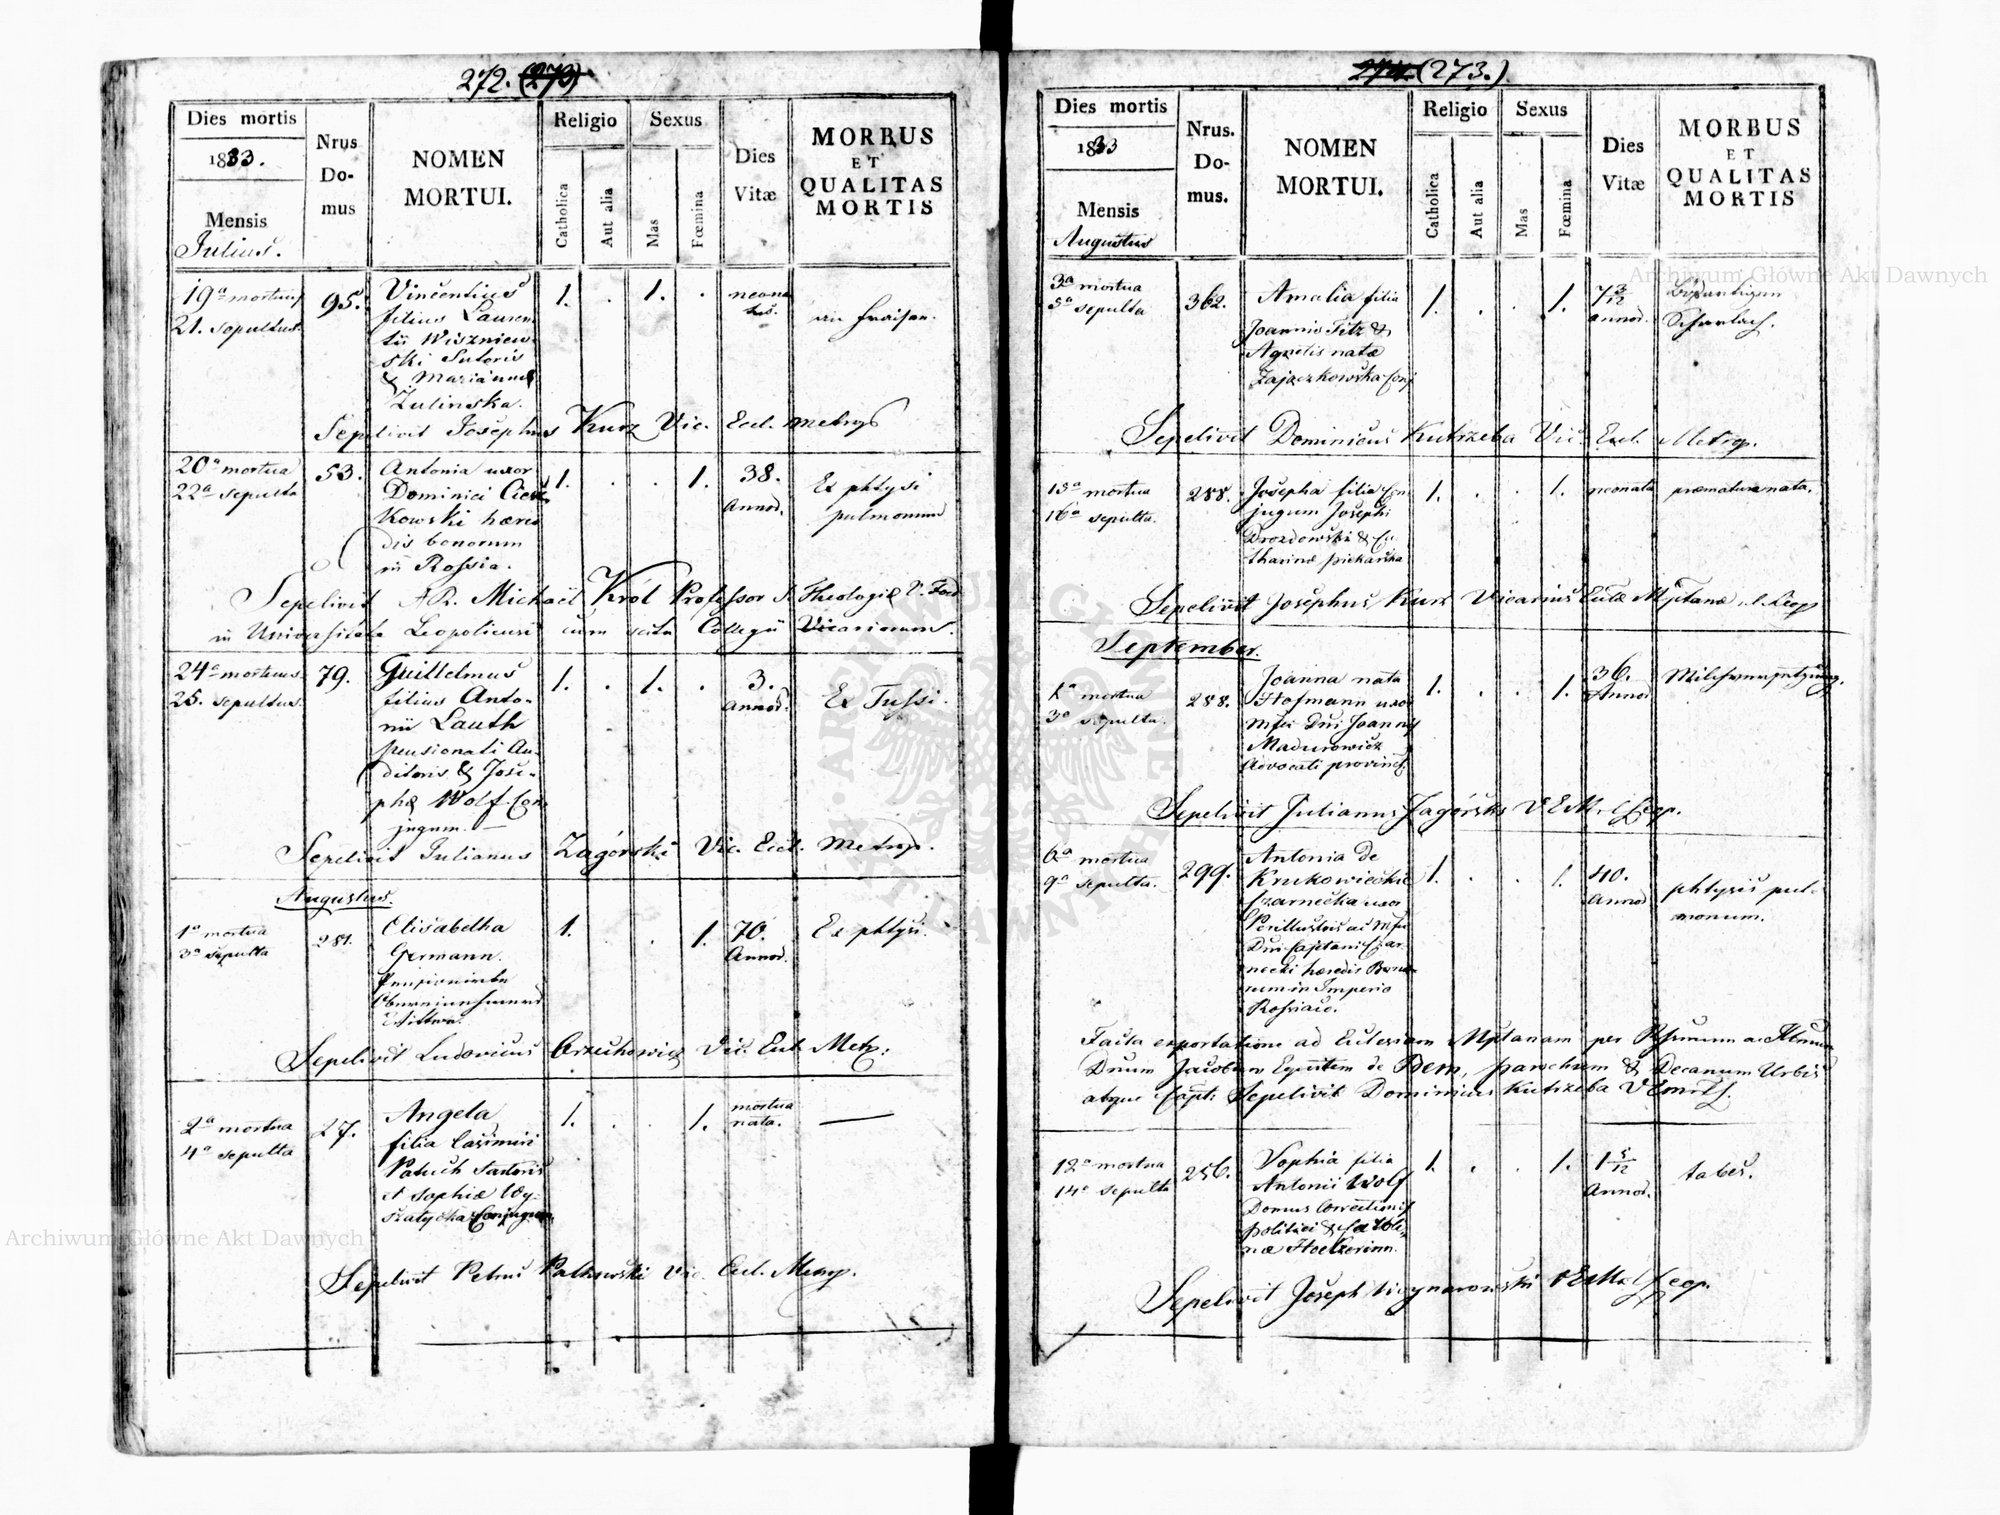 272. (273)
Dies mortis
1833.
Mensis
Julius.
Nrus
Do-
mus
NOMEN
MORTUI.
Religio
Catholica
Aut alia
Sexus
Mas
Fœmina
Dies
Vitæ
MORBUS
ET
QUALITAS
MORTIS
19a mortuus
21. sepultus.
95.
Vincentius
filius Lauren
tii Wiszniew
ski Sutoris
& Mariannæ
Zulinska.
1. . 1. .
neona
tus.
an fraisen.
Sepelivit Josephus Kurz Vic. Eccl. Metrop
20a mortua
22a sepulta
53.
Antonia uxor
Dominici Ciesz
kowski hære
dis bonorum
in Rossia.
1. . . 1.
38.
Annor.
Ex phtysi
pulmonum
Sepelivit AR. Michaël Król Professor S. Theologiæ
in Universitate Leopoliensi cum scitu Collegii Vicariorum.
24a mortuus.
25. sepultus.
79.
Guillelmus
filius Anto-
nii Lauth
pensionati Au-
ditoris & Jose-
phæ Wolf Con
jugum.
1. . 1. .
3.
annor.
Ex Tussi.
Sepelivit Julianus Zagórski Vic. Eccl. Metrop.
Augustus.
1a mortua
3a sepulta
281.
Elisabetha
Germann.
1. . . 1.
70.
Annor.
Ex phtysi.
Sepelivit Ludovicus Orzechowicz Vic. Eccl. Metr:
2a mortua
4a sepulta
27.
Angela
filia Casimiri
Patuch Sartoris
et Sophiæ Wy-
szatycka Conjugum.
1. . . 1.
mortua
nata.
Sepelivit Petrus Vic. Eccl. Metrop.
(273.)
Dies mortis
1833
Mensis
Augustus
Nrus.
Do-
mus.
NOMEN
MORTUI.
Religio
Catholica
Aut alia
Sexus
Mas
Fœmina
Dies
Vitæ
MORBUS
ET
QUALITAS
MORTIS
3a mortua
5a sepulta
362.
Amalia filia
Joannis Titz &
Agnetis nata
Zajączkowska Conj
1. . . 1.
7 3/12
annor.
Scharlach.
Sepelivit Dominicus Kutrzeba Vic. Eccl. Metrop.
15a mortua
16a sepulta.
288.
Josepha filia Con
jugum Josephi
Drozdowski & Ca
tharinæ Piekarska
1. . . 1.
neonata
præmature nata.
Sepelivit Josephus Kurz Vicarius Eccl. Mptanæ r.l. Leop
September.
1a mortua
3a sepulta.
288.
Joanna nata
Hofmann uxor
Mfci Dni Joannis
Madurowicz
Advocati provinc.
1. . . 1.
36.
Annor
Milchversetzung.
Sepelivit Julianus Zagórski V E M. r.l Leop.
6a mortua
9a sepulta.
299.
Antonia de
Krukowieckie
Czarnecka uxor
Perillustris ac Mfci
Dni Cajetani Czar
necki hæredis Bono
rum in Imperio
Rossiaco.
1. . . 1.
40.
Annor
phtysis pul-
monum.
Facta exportatione ad Ecclesiam Mptanam per Rssmum ac
Dnum Jacobum Equitem de Bem, parochum & Decanum Urbis
atque Capt: Sepelivit Dominicus Kutrzeba
12a mortua
14a sepulta
256.
Sophia filia
Antonii Wolf
Domus Correctionis
politici & Caroli-
næ
1. . . 1.
1 5/12
Annor.
tabes.
Sepelivit Joseph Leop.
Archiwum Główne Akt Dawnych
Archiwum Główne Akt Dawnych
ARCHIWUM GŁÓWNE AKT DAWNYCH